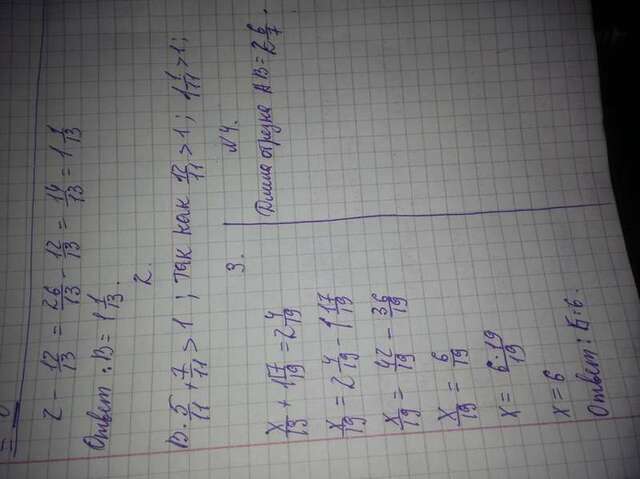 2 - 12/13 = 26/13 - 12/13 = 14/13 = 1 1/13
Ответ: В = 1 1/13.
2.
В. 5/11 + 7/11 > 1; так как 12/11 > 1; 1 1/11 > 1;
3.
x/19 + 1 17/19 = 2 4/19
x/19 = 2 4/19 - 1 17/19
x/19 = 42/19 - 36/19
x/19 = 6/19
x = 6·19/19
x = 6
Ответ: Б: 6.
N 4.
Длина отрезка АВ = 2 6/7.